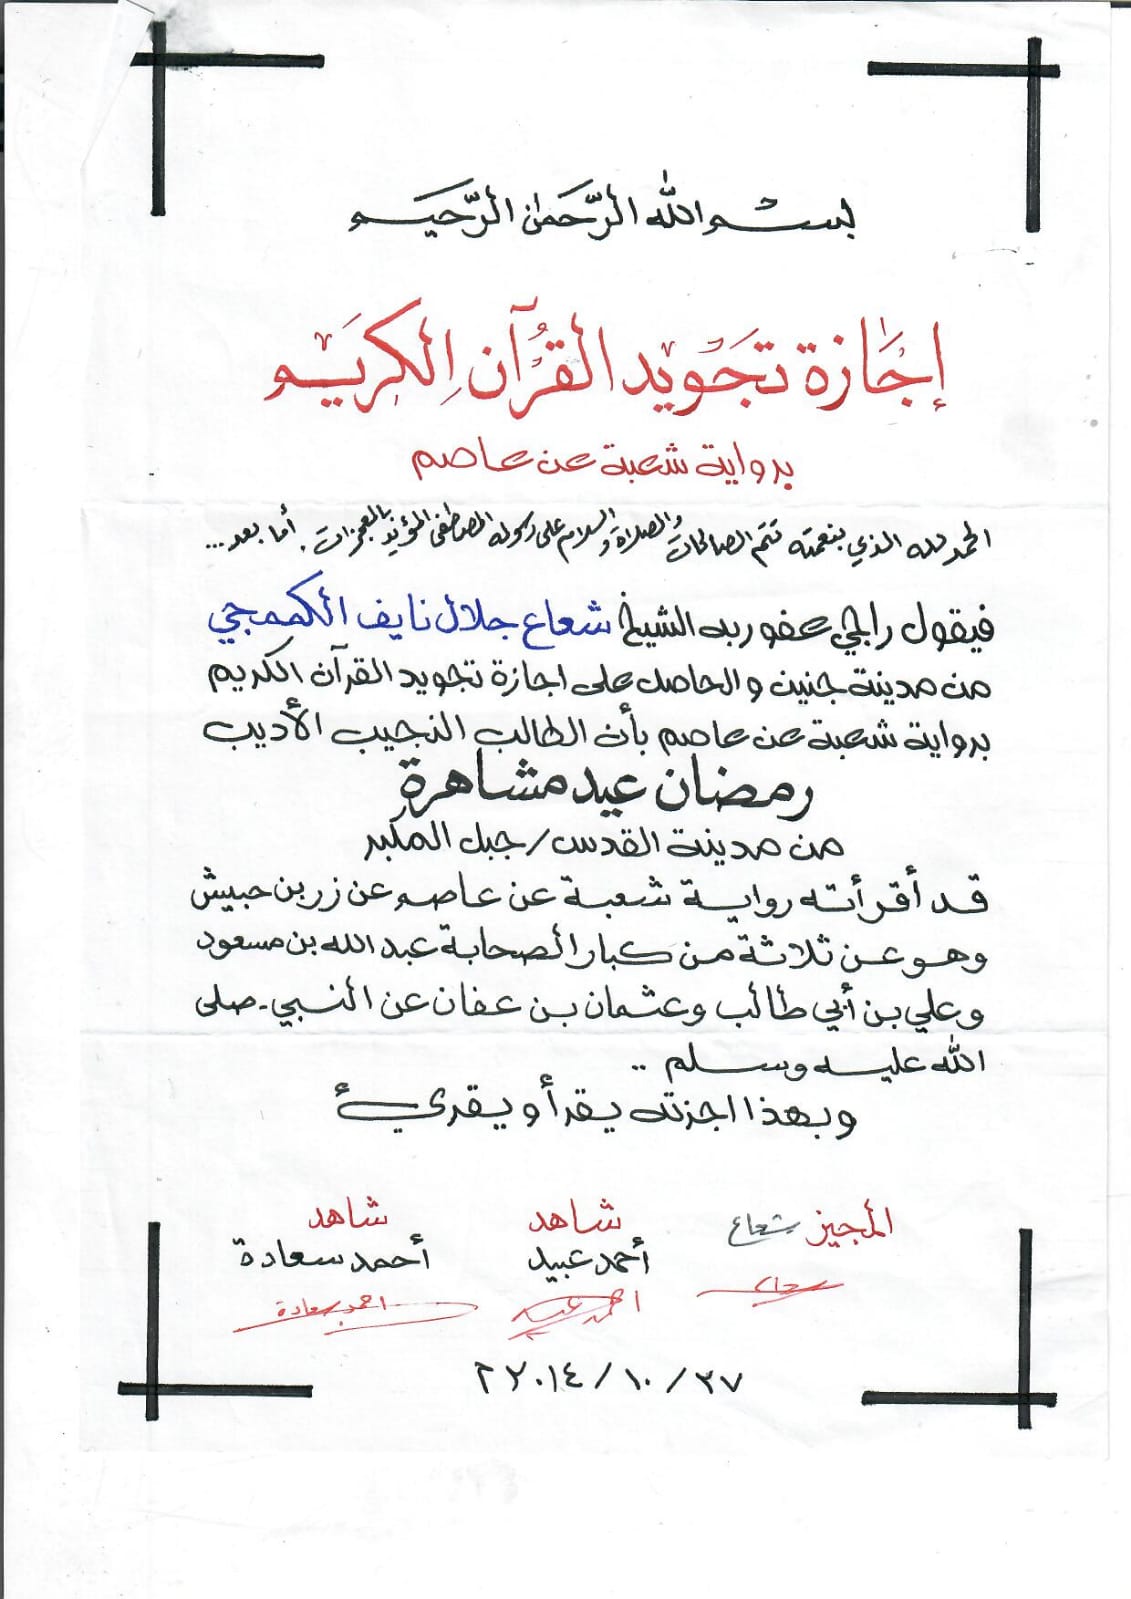 بسم الله الرَّحمن الرَّحيم
إجَازة تجَويد القُرآن الكَريم
برواية شعبة عن عاصم
الحمد لله الذي بنعمته تتم الصالحات والصلاة والسلام على رسوله المصطفى المؤيد بالمعجزات. أما بعد...
فيقول راجي عفو ربه الشيخ شعاع جلال نايف الكممجي
من مدينة جنين والحاصل على اجازة تجويد القرآن الكريم
برواية شعبة عن عاصم بأن الطالب النجيب الأديب
رمضان عيد مشاهرة
من مدينة القدس/جبل المكبر
قد أقرأته رواية شعبة عن عاصم عن زر بن حبيش
وهو عن ثلاثة من كبار الصحابة عبد الله بن مسعود
وعلي بن أبي طالب وعثمان بن عفان عن النبي - صلى
الله عليه وسلم ..
وبهذا اجزته يقرأ ويقرئ
المجيز شعاع شاهد شاهد
أحمد عبيد أحمد سعادة
شعاع احمد عبيد احمد سعادة
٢٠١٤/١٠/٢٧